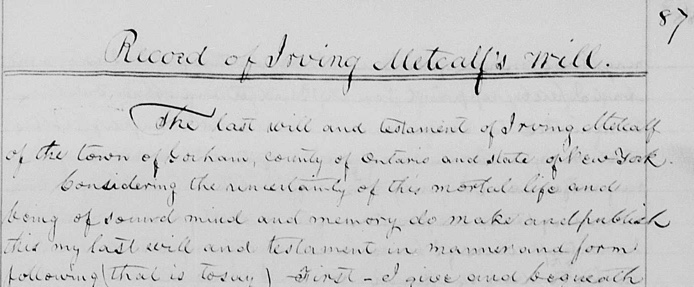 87
Record of Irving Metcalf's Will.
The last will and testament of Irving Metcalf
of the town of Gorham, county of Ontario and state of New York.
Considering the uncertainty of this mortal life and
being of sound mind and memory do make and publish
this my last will and testament in manner and form
following (that is to say) First - I give and bequeath